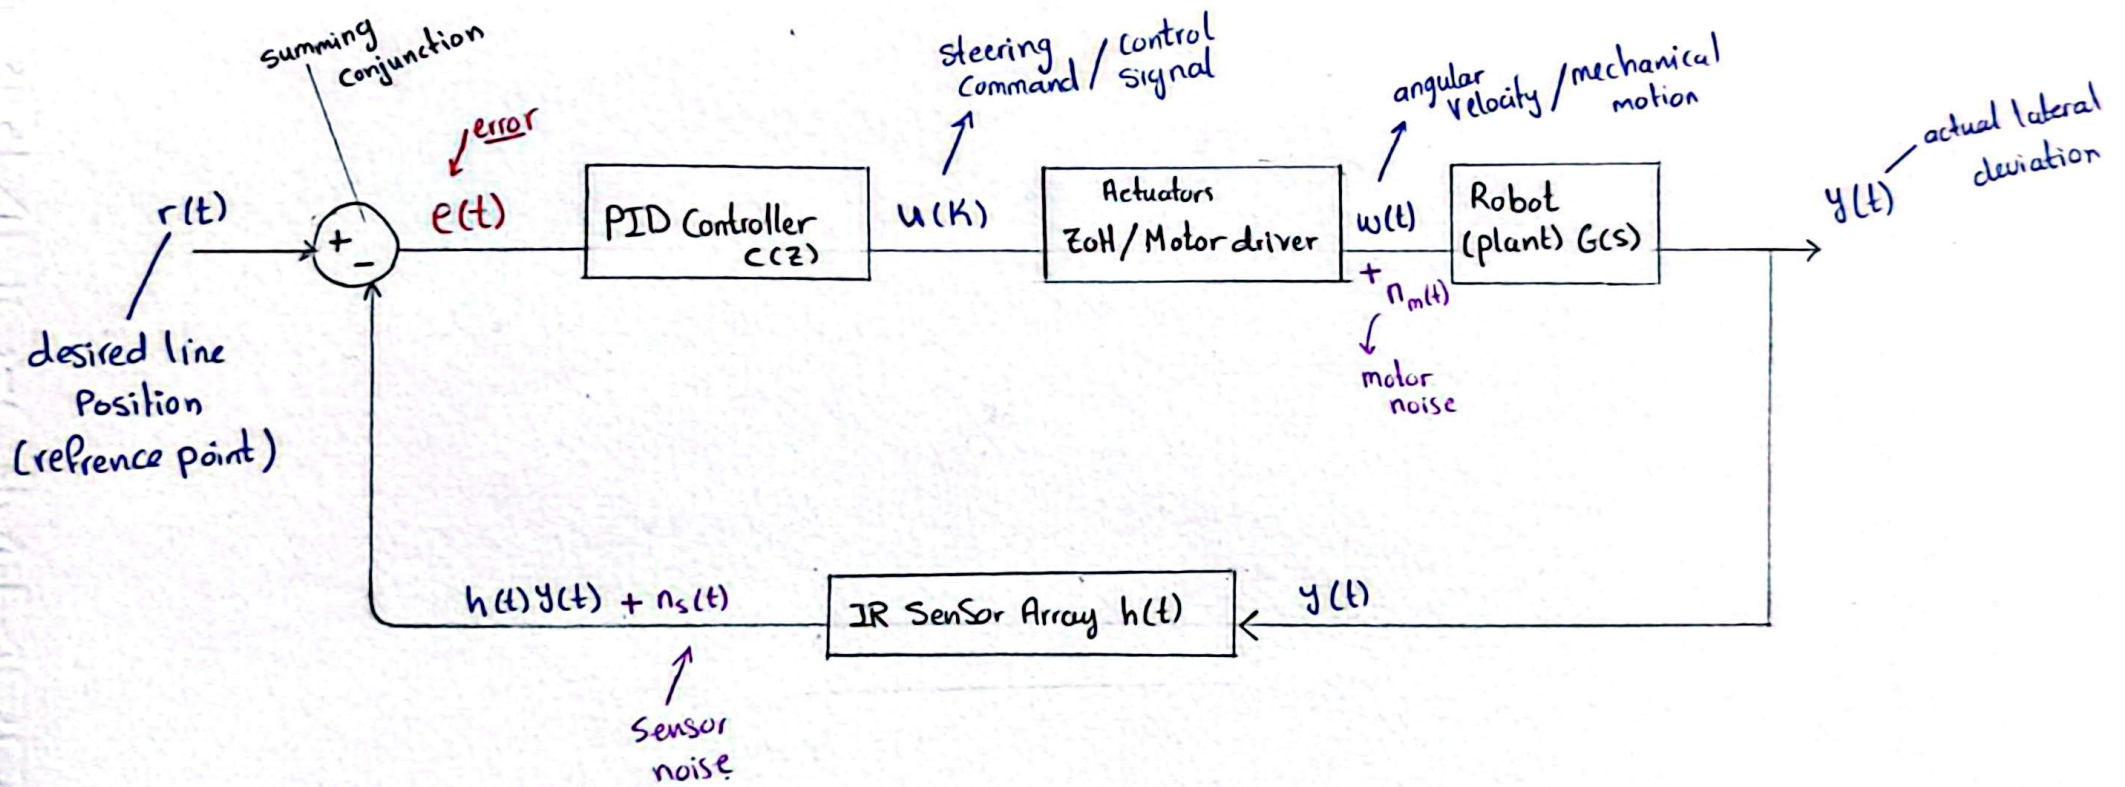 summing
conjunction
error
r(t)
+
−
e(t)
desired line
Position
(refrence point)
PID Controller
C(Z)
u(K)
Steering
Command / Control
Signal
Actuators
ZoH/Motor driver
w(t)
angular
velocity / mechanical
motion
+
nm(t)
motor
noise
Robot
(plant) G(s)
y(t)
actual lateral
deviation
h(t) y(t) + ns(t)
Sensor
noise
IR Sensor Array h(t)
y(t)